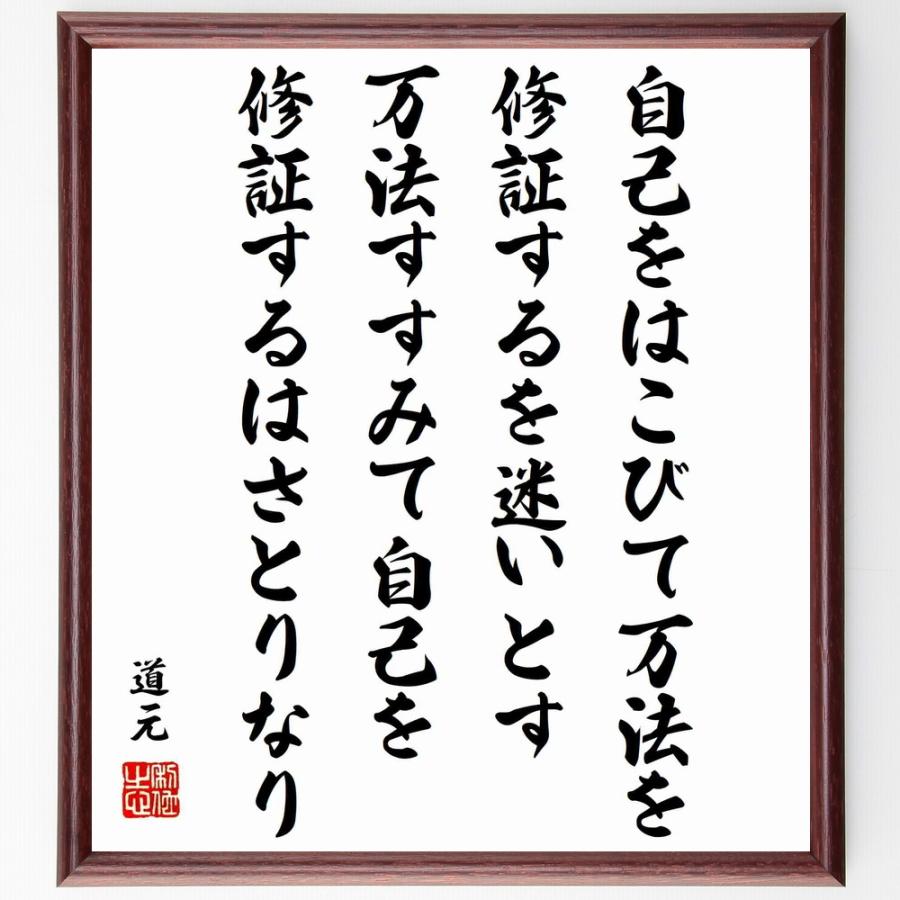 自己をはこびて万法を
修証するを迷いとす
万法すすみて自己を
修証するはさとりなり
道元